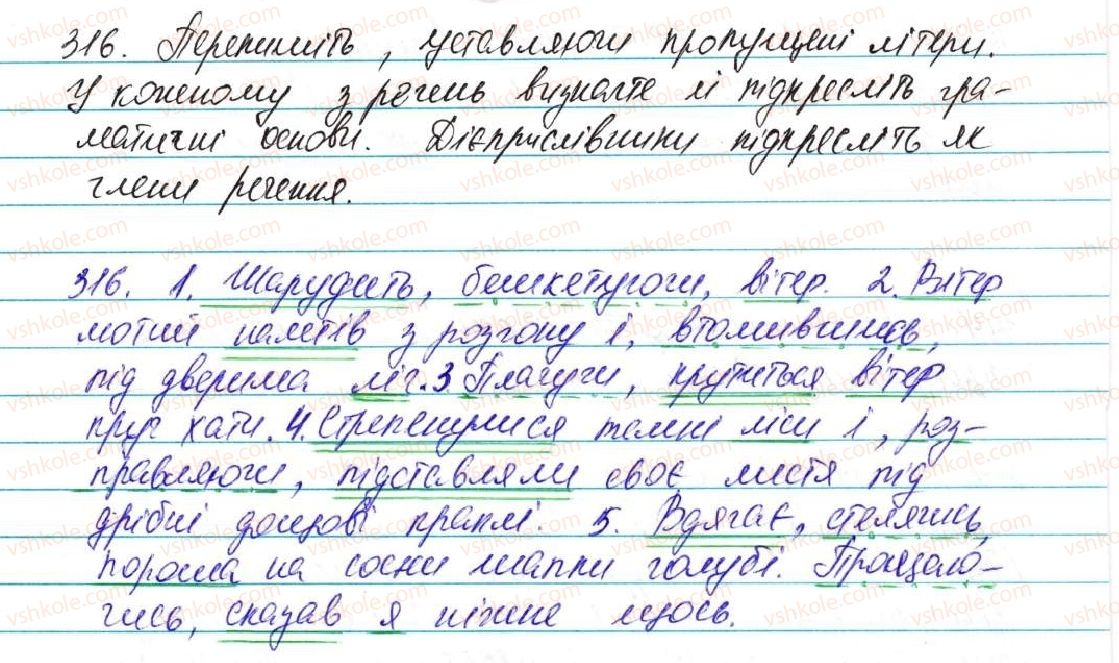 316. Перепишіть, уставляючи пропущені літери.
У кожному з речень визначте й підкресліть гра-
матичні основи. Дієприслівники підкресліть як
члени речення.
316. 1. Шарудить, бешкетуючи, вітер. 2. Вітер
мотий нампів з розгону і, втомившись,
під дверима ліг. 3 Плачучи, крутиться вітер
круг хати. 4. Стрепенулися темні ліси і, роз-
правляючи, підставляли своє листя під
дрібні дощові краплі. 5. Вдягає, стелячись,
пороша на сосни шапки голубі. Прощаю-
чись, сказав я ніжне щось.